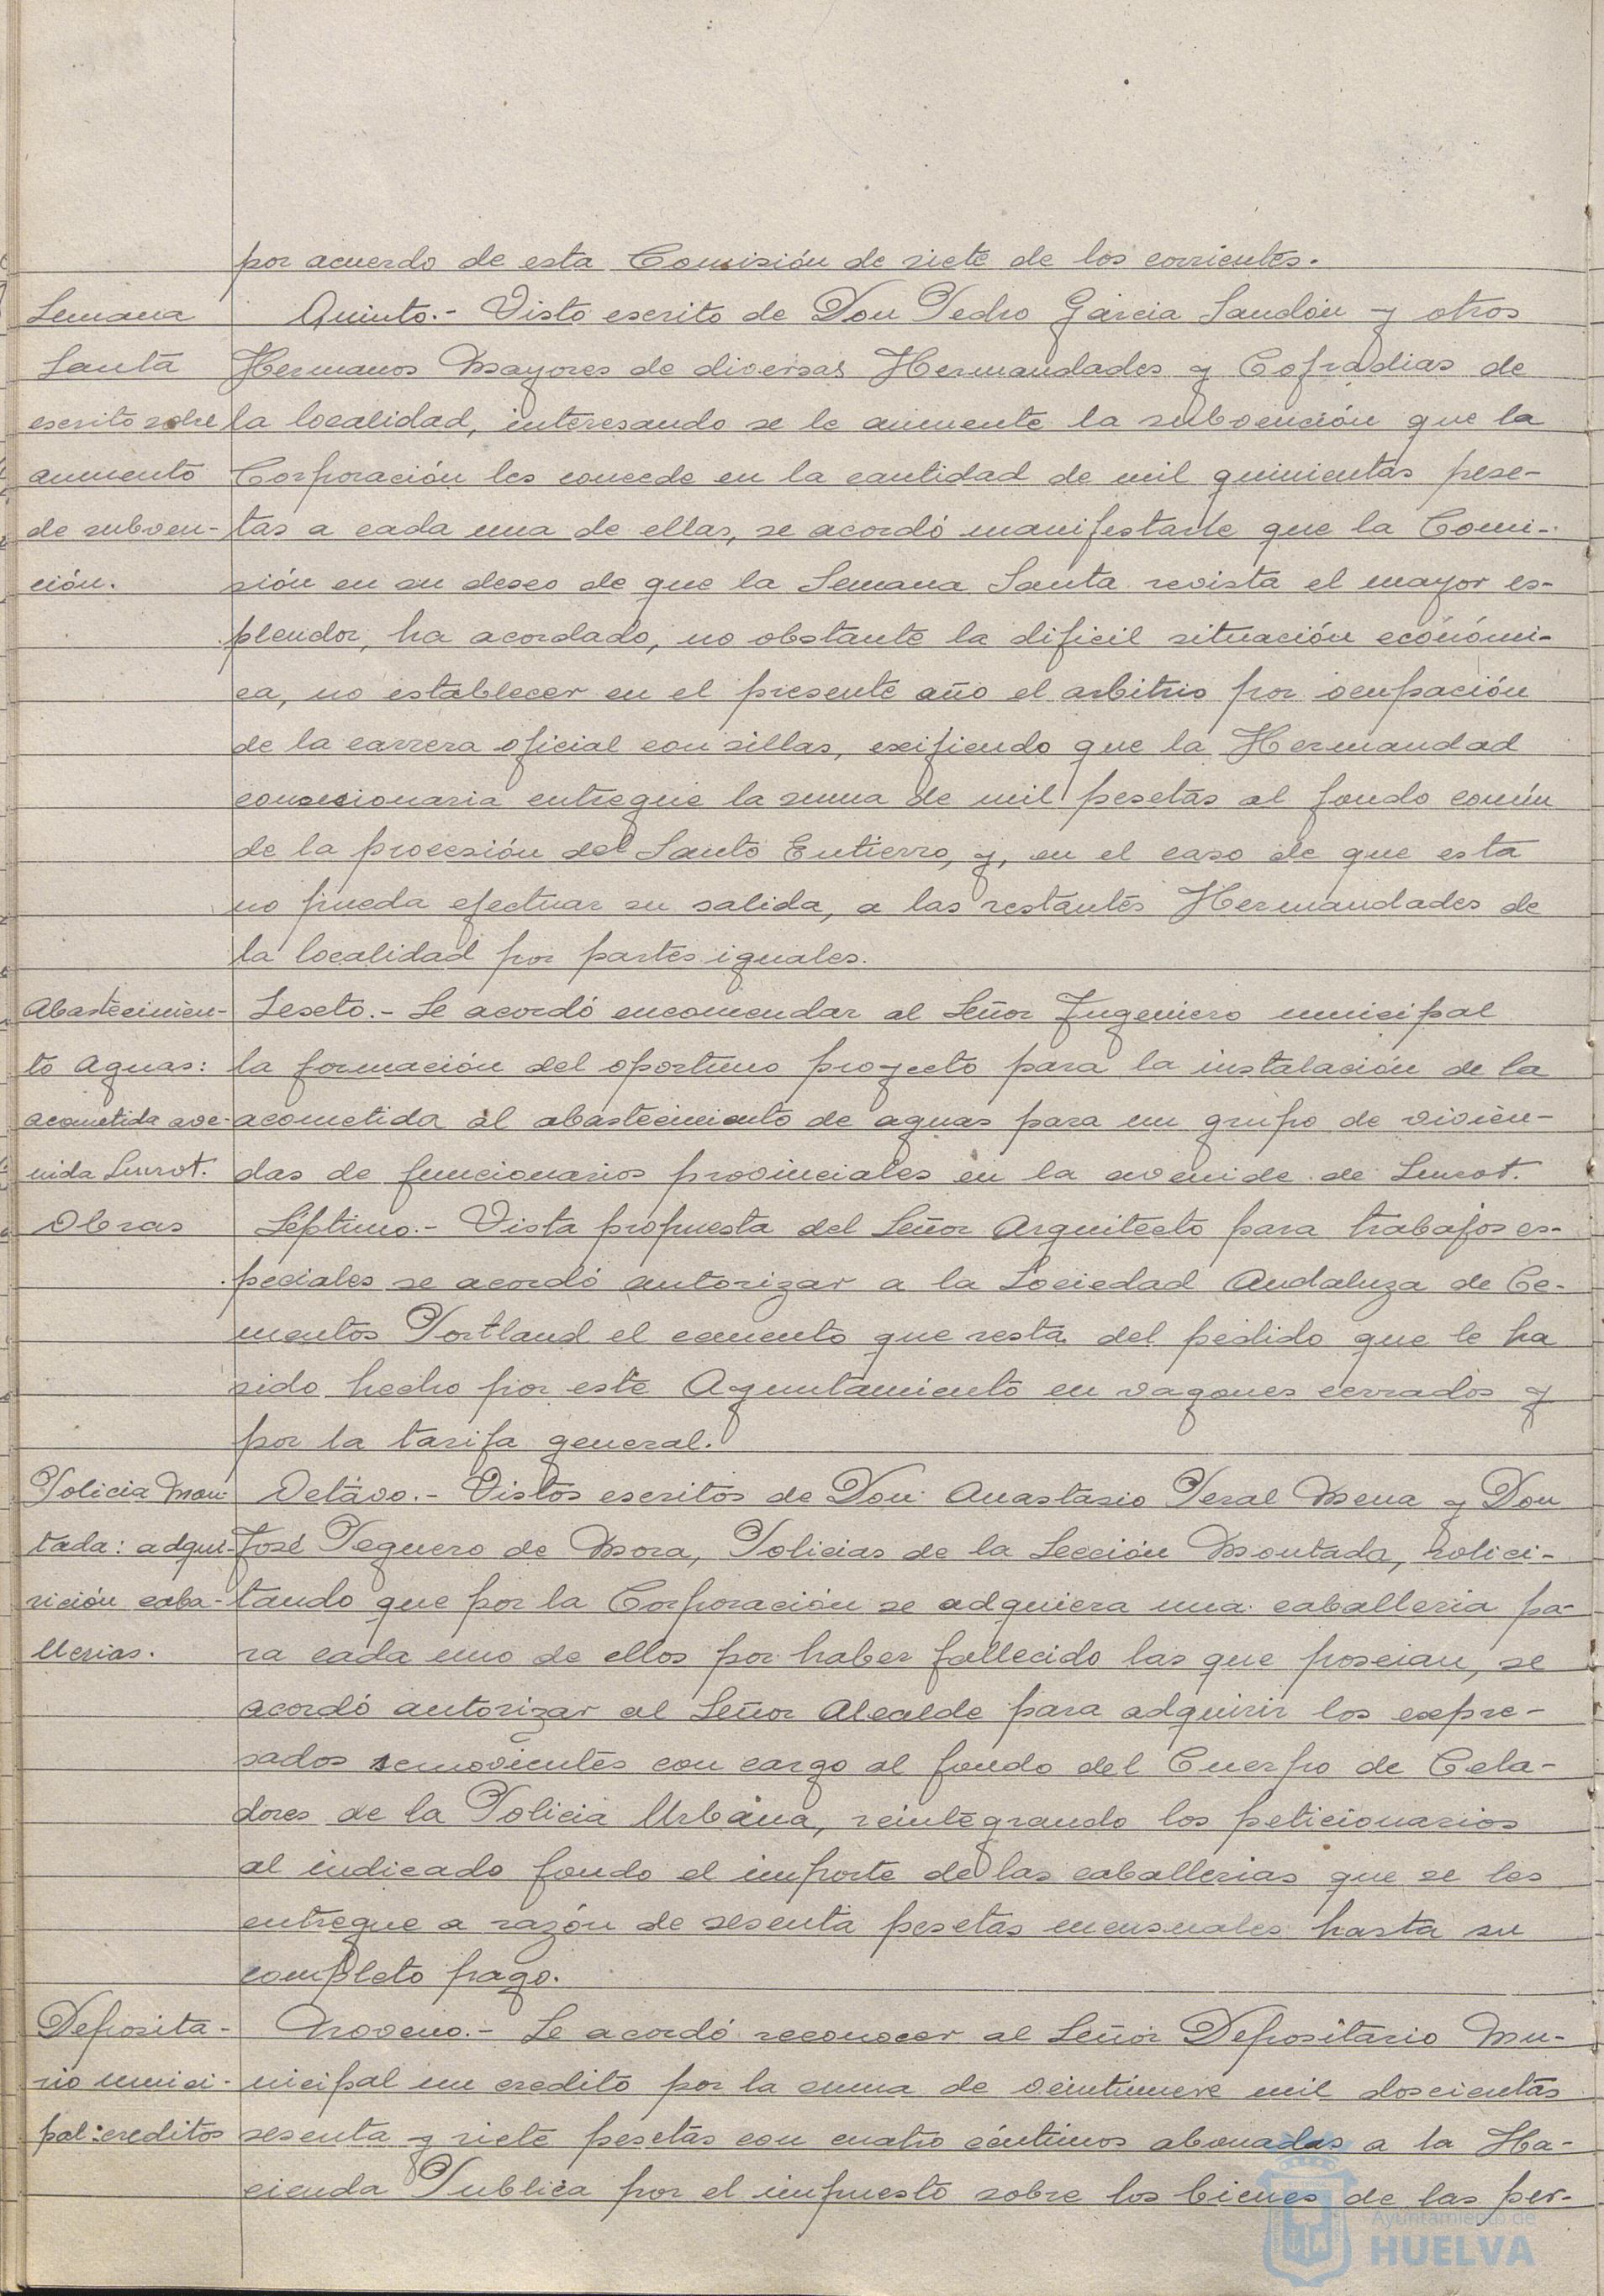 por acuerdo de esta Comisión de siete de los corrientes.
Semana
Santa
escrito sobre
aumento
de subven-
ción.
Quinto.- Visto escrito de Don Pedro Garcia Sandón y otros
Hermanos Mayores de diversas Hermandades y Cofradias de
la localidad, interesando se le aumente la subvención que la
Corporación les concede en la cantidad de mil quinientas pese-
tas a cada una de ellas, se acordó manifestarle que la Comi-
sión en su deseo de que la Semana Santa revista el mayor es-
plendor, ha acordado, no obstante la dificil situación económi-
ca, no establecer en el presente año el arbitrio por ocupación
de la carrera oficial con sillas, exigiendo que la Hermandad
concesionaria entregue la suma de mil pesetas al fondo común
de la procesión del Santo Entierro, y, en el caso de que esta
no pueda efectuar su salida, a las restantes Hermandades de
la localidad por partes iguales.
Abastecimien-
to Aguas:
acometida ave-
nida Sunrot.
Sexto.- Se acordó encomendar al Señor Ingeniero municipal
la formación del oportuno proyecto para la instalación de la
acometida al abastecimiento de aguas para un grupo de vivien-
das de funcionarios provinciales en la avenida de Sunrot.
Obras
Séptimo.- Vista propuesta del Señor Arquitecto para trabajos es-
peciales se acordó autorizar a la Sociedad Andaluza de Ce-
mentos Portland el cemento que resta del pedido que le ha
sido hecho por este Ayuntamiento en vagones cerrados y
por la tarifa general.
Policia Mon-
tada: adqui-
sición caba-
llerias.
Octavo.- Vistos escritos de Don Anastasio Peral Mena y Don
José Peguero de Mora, Policias de la Sección Montada, solici-
tando que por la Corporación se adquiera una caballeria pa-
ra cada uno de ellos por haber fallecido las que poseian, se
acordó autorizar al Señor Alcalde para adquirir los expre-
sados semovientes con cargo al fondo del Cuerpo de Cela-
dores de la Policia Urbana, reintegrando los peticionarios
al indicado fondo el importe de las caballerias que se les
entregue a razón de sesenta pesetas mensuales hasta su
completo pago.
Deposita-
rio munici-
pal: creditos
Noveno.- Se acordó reconocer al Señor Depositario Mu-
nicipal un credito por la suma de veintinueve mil doscientas
sesenta y siete pesetas con cuatro céntimos abonadas a la Ha-
cienda Publica por el impuesto sobre los bienes de las per-
Ayuntamiento de
HUELVA